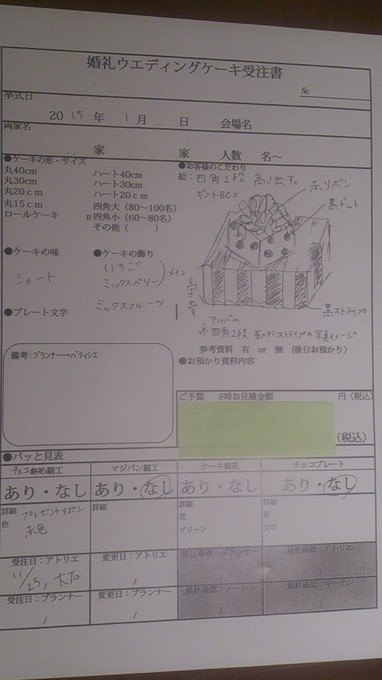 婚礼ウエディングケーキ受注書
No
挙式日
2015年 1月 日 会場名
両家名
家 家 人数 名～
●ケーキの形・サイズ ●お客様のこだわり
丸40cm ハート40cm
丸30cm ハート30cm
丸20cm ハート20cm
丸15cm 四角大(80～100名)
ロールケーキ 四角小(60～80名)
その他( )
絵:四角2段 高さ出す
ギフトBOX
赤リボン
黒ドット
●ケーキの味 ●ケーキの飾り
ショート
いちご
ミックスベリー
メイン
ミックスフルーツ
高さ
黒ストライプ
●プレート文字
四角2段
参考資料 有 or 無 (後日お預かり)
●お預かり資料内容
備考:プランナー→パティシエ
ご予算 円(税込)
(税込)
●パッと見表
チョコ飴め細工 マジパン細工 ケーキ装花 チョコプレート
あり・なし あり・なし あり・なし あり・なし
詳細 プレゼントリボン
色 赤色
詳細
詳細
花
グリーン
詳細
形
文字
受注日:アトリエ 変更日:アトリエ
11/25,
受注日:プランナー 変更日:プランナー